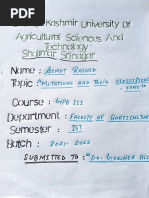 Kashmir University Of
Agricultural Sciences And
Technology
Shalimar Srinagar
Name : Azmat Rashid
Topic "Mutations and Their Classifica
tions"
Course : GPB 211
Department : Faculty of Horticultur
Semester : Ist
Batch : 2021-2022
SUBMITTED TO :- "Dr.